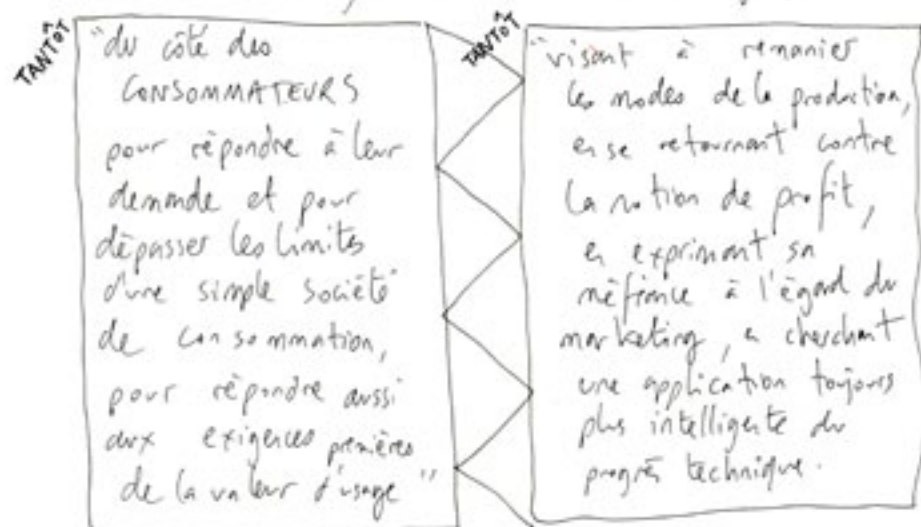 TANTÔT
"du côté des
CONSOMMATEURS
pour répondre à leur
demande et pour
dépasser les limites
d'une simple société
de consommation,
pour répondre aussi
aux exigences premières
de la valeur d'usage"
TANTÔT
"visant à remanier
les modes de la production,
en se retournant contre
la notion de profit,
en exprimant sa
méfiance à l'égard du
marketing, en cherchant
une application toujours
plus intelligente du
progrès technique.